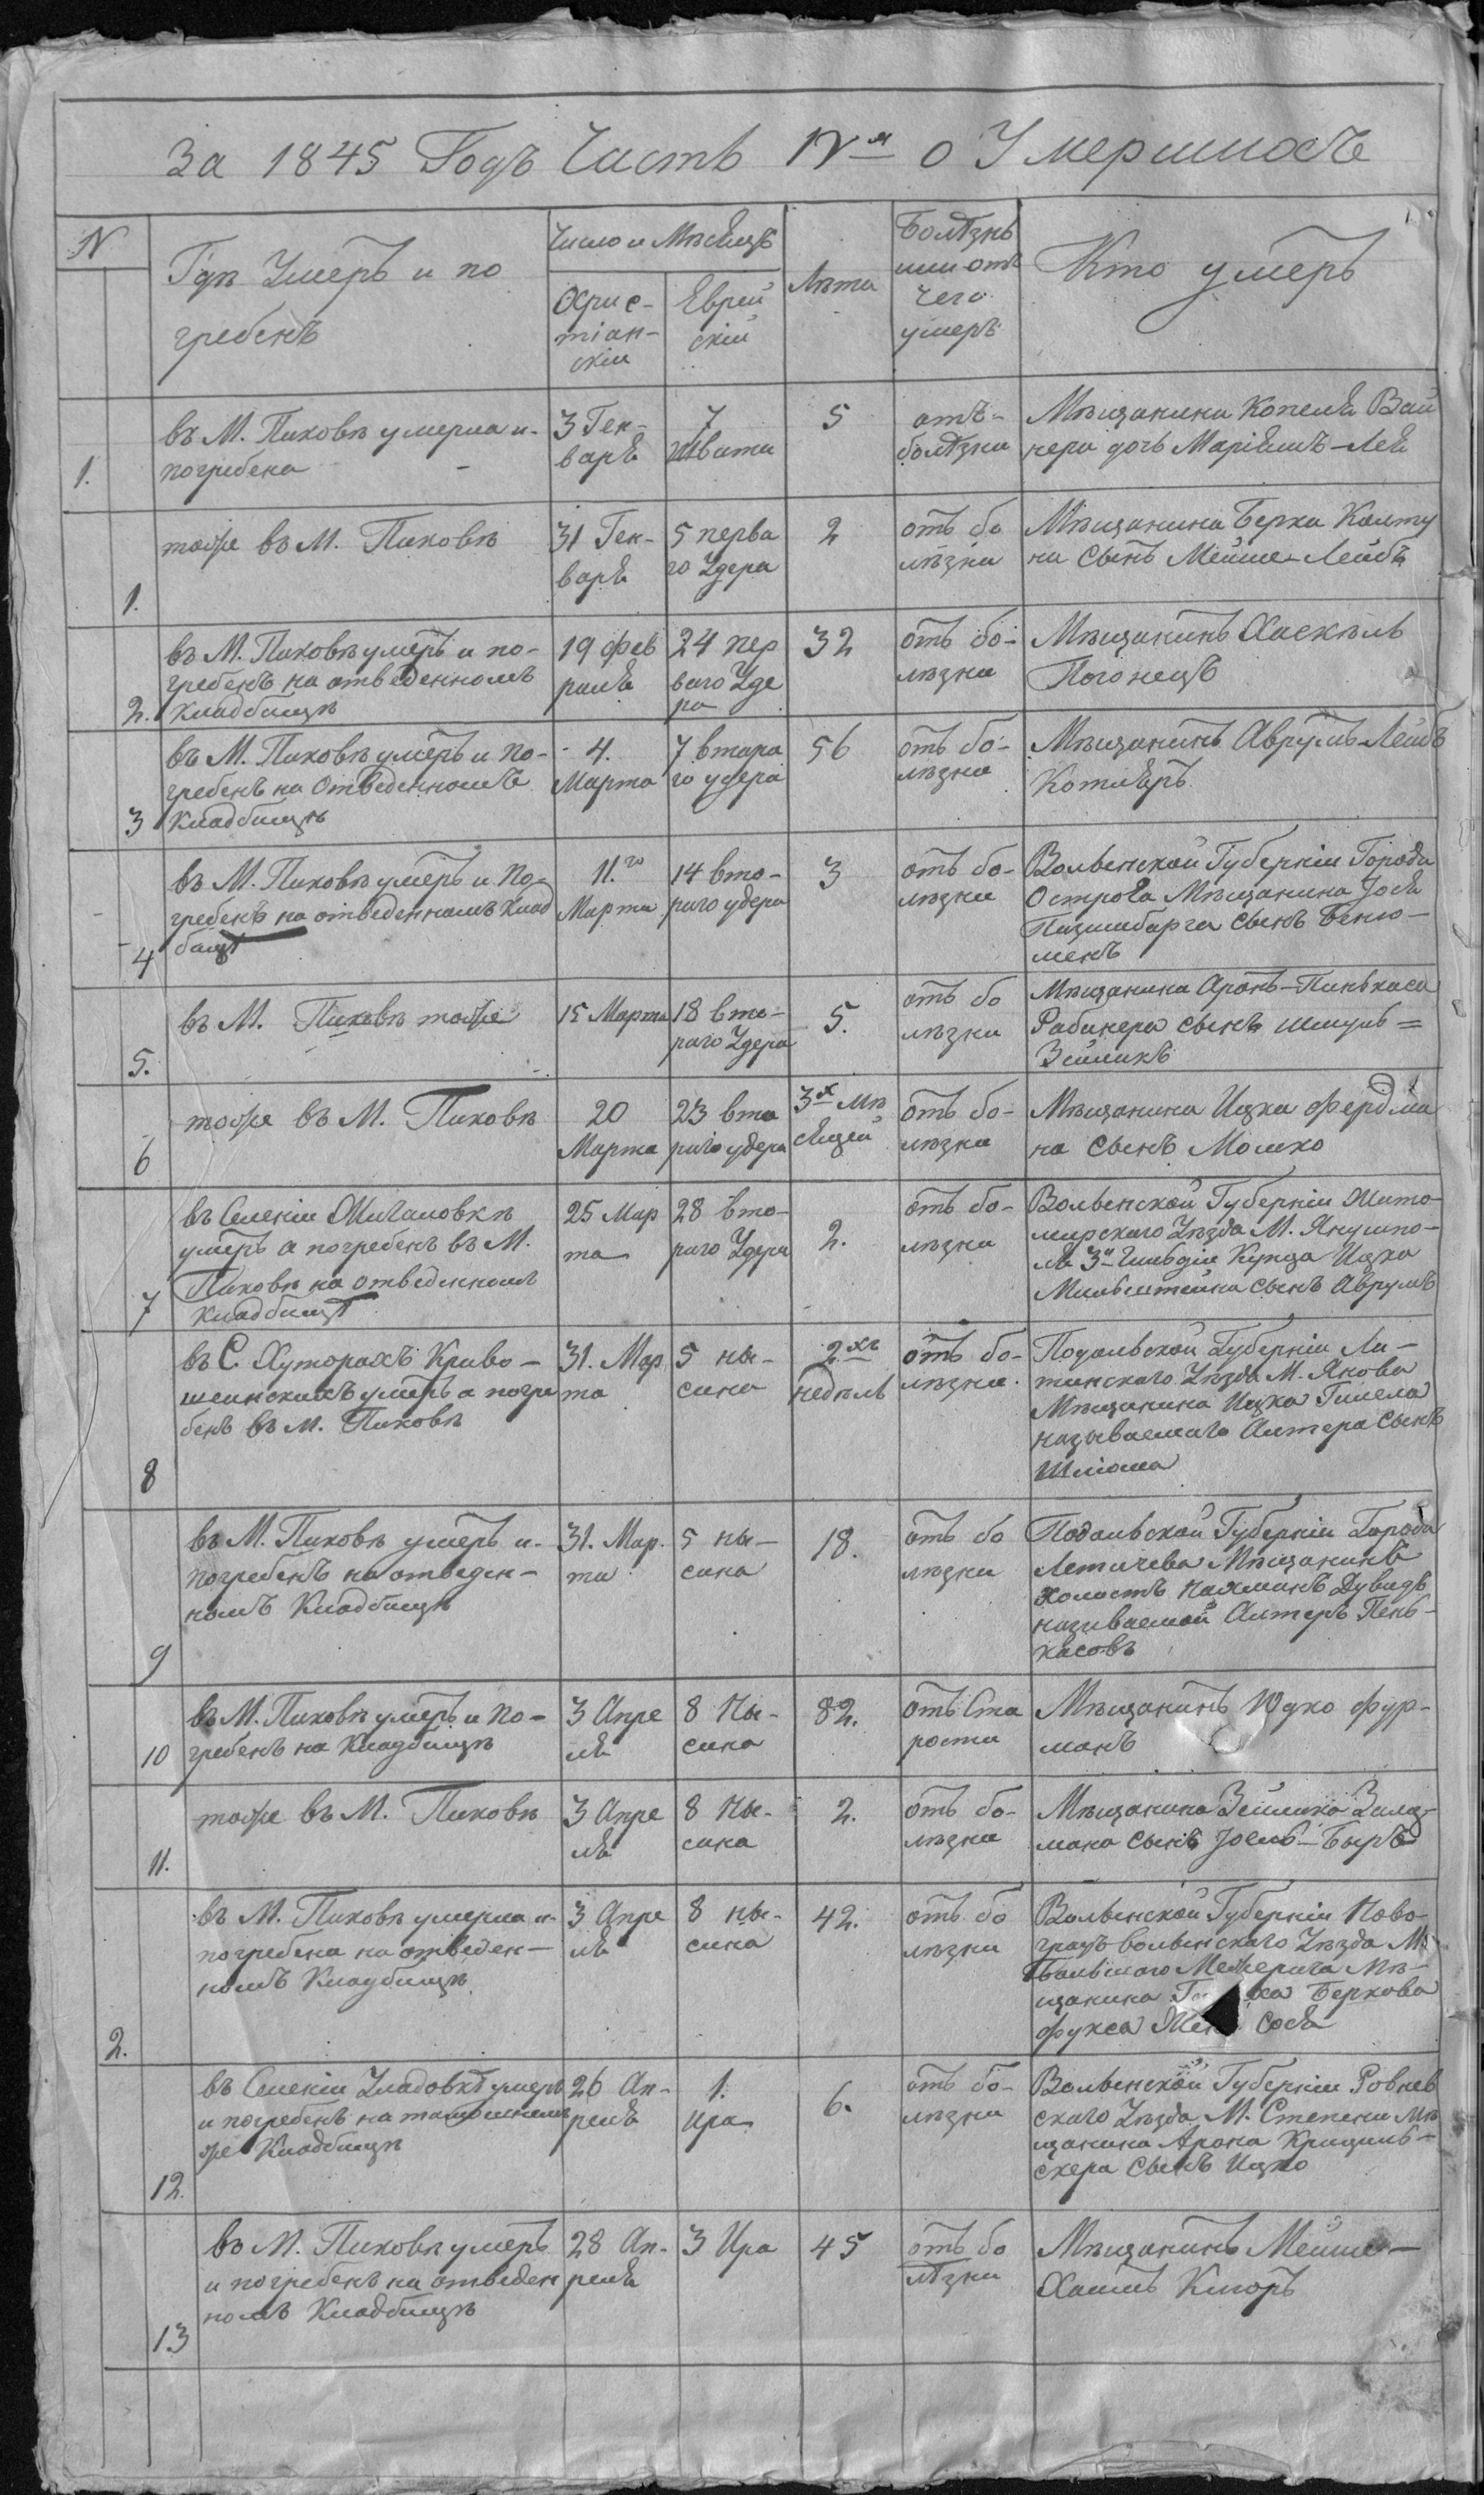 За 1845 Годъ Часть IVя о Умершихъ
N
Гдѣ Умеръ и по
гребенъ
Число и Мѣсяцъ
Хрис-
тіан-
скіи
Еврей
скій
Лѣта
Болѣзнь
или отъ
чего
умеръ
Кто умеръ
1.
въ М. Пиковѣ умерла и
погребена
3 Ген-
варя
7
Швата
5
отъ-
болѣзни
Мѣщанина Копеля Вай
нера дочь Маріямъ-Лея
1.
тоже въ М. Пиковѣ
31 Ген-
варя
5 перва
го Удера
2
отъ бо
лѣзни
Мѣщанина Берка Колту
на Сынъ Мейше-Лейбъ
2.
въ М. Пиковѣ умеръ и по-
гребенъ на отведенномъ
Кладбищѣ
19 фев
раля
24 пер
ваго Уде
ра
32
отъ бо-
лѣзни
Мѣщанинъ Хаскель
Погонецъ
3
въ М. Пиковѣ умеръ и по-
гребенъ на Отведенномъ
Кладбищѣ
4.
Марта
7 втора
го удера
56
отъ бо-
лѣзни
Мѣщанинъ Аврумъ-Лейбъ
Котляръ
4
въ М. Пиковѣ умеръ и По-
гребенъ на отведенномъ Клад
бищѣ
11.го
Марта
14 вто-
раго удера
3
отъ бо-
лѣзни
Волынской Губерніи Города
Острога Мѣщанина Іося
сынъ Беню-
менъ
5.
въ М. Пиковѣ тоже
15 Марта
18 вто-
раго Удера
5.
отъ бо
лѣзни
Мѣщанина Аронъ-Пинькаса
Рабинера сынъ Шмуль=
Зейликъ
6
тоже въ М. Пиковѣ
20
Марта
23 вто
раго удера
3х мѣ
сяцей
отъ бо-
лѣзни
Мѣщанина Ицка Фердма
на Сынъ Мошко
7
въ Селеніи Жигаловкѣ
умеръ а погребенъ въ М.
Пиковѣ на отведенномъ
кладбищѣ
25 Мар
та
28 вто-
раго Удера
2.
отъ бо-
лѣзни
Волынской Губерніи Жито-
мирскаго Уѣзда М. Янушпо-
ля 3й Гильдіи Купца Ицка
Мильштейна сынъ Аврумъ
8
въ С. Хуторахъ Криво-
шеинскихъ умеръ а погре
бенъ въ М. Пиковѣ
31. Мар
та
5 ны-
сина
2хъ
недѣль
отъ бо-
лѣзни.
Подольской Губерніи Ли-
тинскаго Уѣзда М. Янова
Мѣщанина Ицка Гилела
называемаго Алтера Сынъ
Шліома
9
въ М. Пиковѣ умеръ и-
погребенъ на отведен-
номъ Кладбищѣ
31. Мар.
та
5 ны-
сина
18.
отъ бо
лѣзни
Подольской Губерніи Города
Летичева Мѣщанинъ
холостъ Нахманъ Дувидъ
називаемой Алтеръ Пень-
хасовъ
10
въ М. Пиковѣ умеръ и по-
гребенъ на Кладбищѣ
3 Апре
ля
8 Ны-
сина
82.
отъ Ста
рости
Мѣщанинъ Юдко Фур-
манъ
11.
тоже въ М. Пиковѣ
3 Апре
ля
8 Ны-
сина
2.
отъ бо-
лѣзни
Мѣщанина Зейлика Залц-
мана Сынъ Іоель-Быръ
2.
въ М. Пиковѣ умерла и-
погребена на отведен-
номъ Кладбищѣ
3 Апре
ля
8 ны-
сина
42.
отъ бо
лѣзни
Волынской Губерніи Ново-
градъ-волынскаго Уѣзда М.
Большого Межерича Мѣ-
щанина Беркова
Фукса Жена Сося
12.
въ Селеніи Уладовкѣ умеръ
и погребенъ на тамошнемъ
же Кладбищѣ
26 Ап-
реля
1.
Ира
6.
отъ бо-
лѣзни
Волынской Губерніи Ровнев
скаго Уѣзда М. Степени Мѣ
щанина Арона Крицшль-
скера Сынъ Ицко
13
въ М. Пиковѣ умеръ
и погребенъ на отведен
номъ Кладбищѣ
28 Ап-
реля
3 Ира
45
отъ бо
лѣзни
Мѣщанинъ Мейше-
Хаимъ Кигоръ